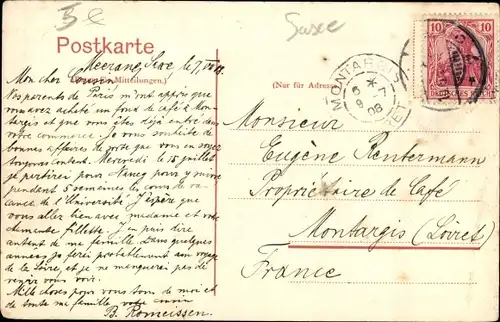 5 c
Saxe
Postkarte
Meerane, Saxe, le 7, VII 08.
Mon cher Cousin
(für Mitteilungen.)
(Nur für Adresse)
Nos parents de Paris m'ont appris que
vous avez acheté un fond de café à Mon-
targis et que vous êtes déjà entré dans
votre commerce. Je vous souhaite de
bonnes affaires de sorte que vous en soyez
toujours content. Mercredi le 15 juillet
je pars pour Nancy pour y suivre
pendent 5 semaines les cours de va-
cance de l'Université J'espère que
vous allez bien avec madame et votre
charmante fillette. J'en puis dire
autant de ma famille. Dans quelques
années je ferai probablement un voyage
de la Loire, et je ne manquerai pas de
venir vous voir.
Mille choses pour vous tous de moi et
de toute ma famille votre cousin
B. Romeissen.
MONTARGIS
LOIRET
6
9 -7
08
10 10
DEUTSCHES REICH
Monsieur
Eugène Rentermann
Propriétaire de Café
Montargis (Loiret)
France